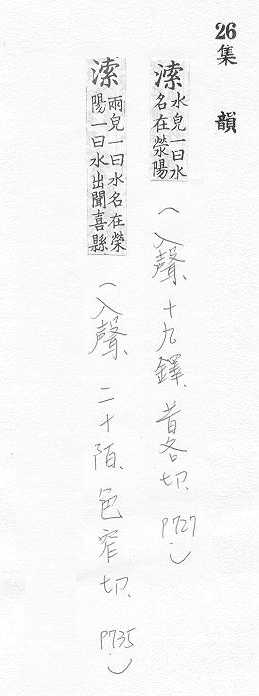 26集韻
溹水皃一曰水名在滎陽(入聲、十九鐸、昔各切、P727)
溹雨皃一曰水名在滎陽一曰水出聞喜縣(入聲、二十陌、色窄切、P735)